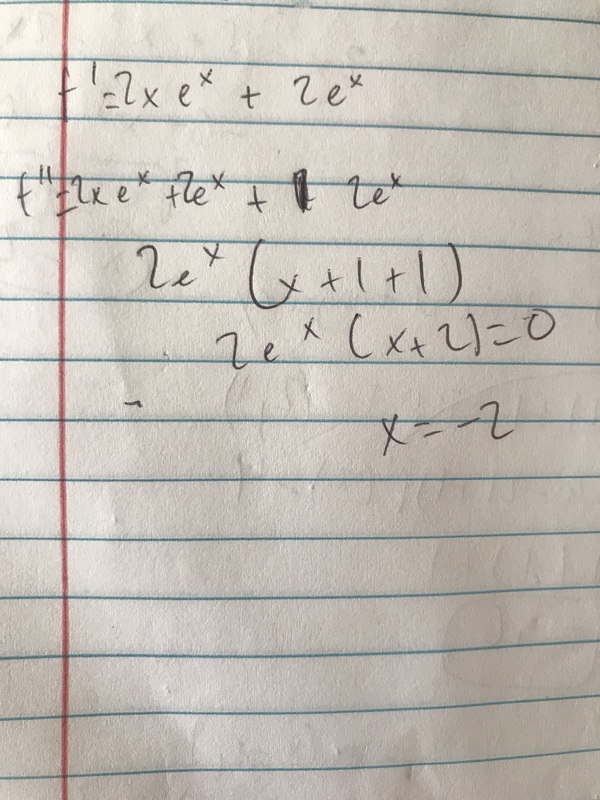 f'=2xe^x + 2e^x
f''=2xe^x +2e^x + 2e^x
2e^x (x+1+1)
2e^x (x+2)=0
x=-2